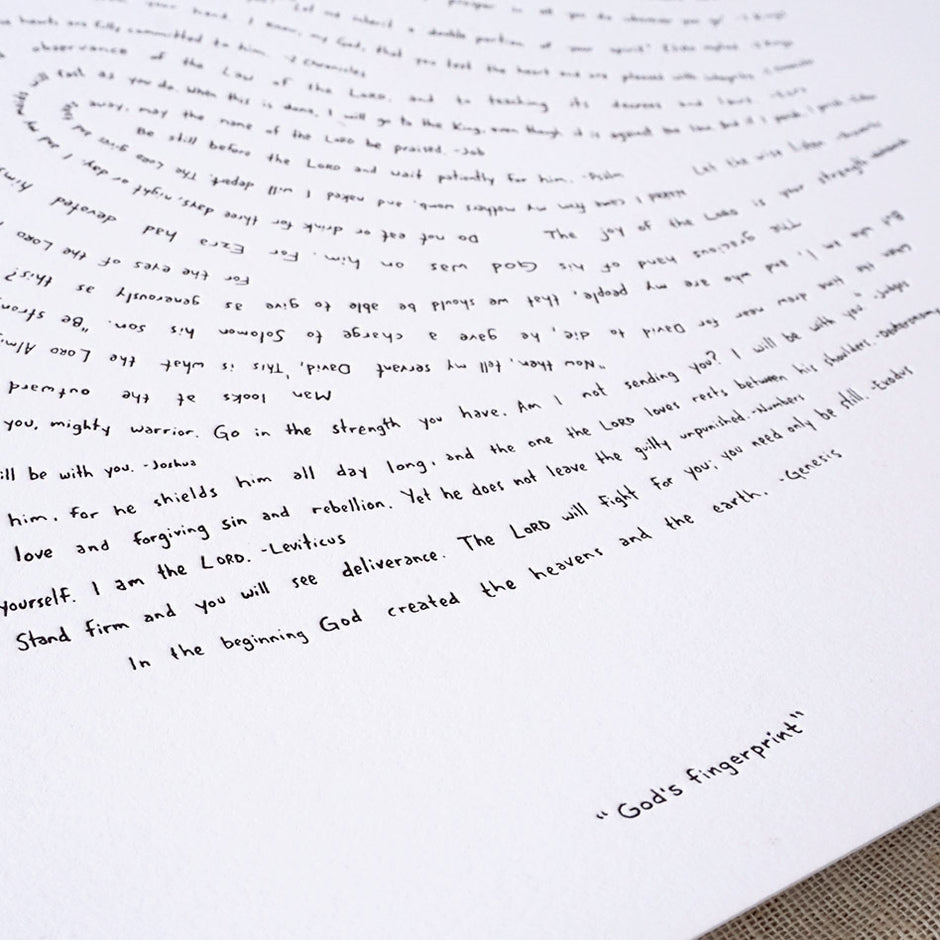 prosper in all you do
your hand. I know, my God, that you test the heart and are pleased with integrity.
Let me inherit a double portion of your spirit"
hearts are fully committed to him. -2 Chronicles
observance of the Law of the LORD, and to teaching its decrees and laws
will fast as you do. When this is done, I will go to the King, even though it is against the law. But if I perish, I perish
away; may the name of the LORD be praised. -Job
Be still before the LORD and wait patiently for him. -Psalm
Let the wise listen
Naked I came from my mother's womb, and naked I will depart. The LORD gave
The joy of the LORD is your strength
Do not eat or drink for three days, night or day. I and my maids
The gracious hand of his God was on him. For Ezra had devoted
For the eyes of the LORD
But who am I, and who are my people, that we should be able to give as generously as this?
When the time drew near for David to die, he gave a charge to Solomon his son. "Be strong
"Now then, tell my servant David, 'This is what the LORD Alm
Man looks at the outward
you, mighty warrior. Go in the strength you have. Am I not sending you? I will be with you" -Judges
ill be with you. -Joshua
him, for he shields him all day long, and the one the LORD loves rests between his shoulders. -Deuteronomy
love and forgiving sin and rebellion. Yet he does not leave the guilty unpunished. -Numbers
yourself. I am the LORD. -Leviticus
Stand firm and you will see deliverance. The LORD will fight for you; you need only be still. -Exodus
In the beginning God created the heavens and the earth. -Genesis
"God's fingerprint"